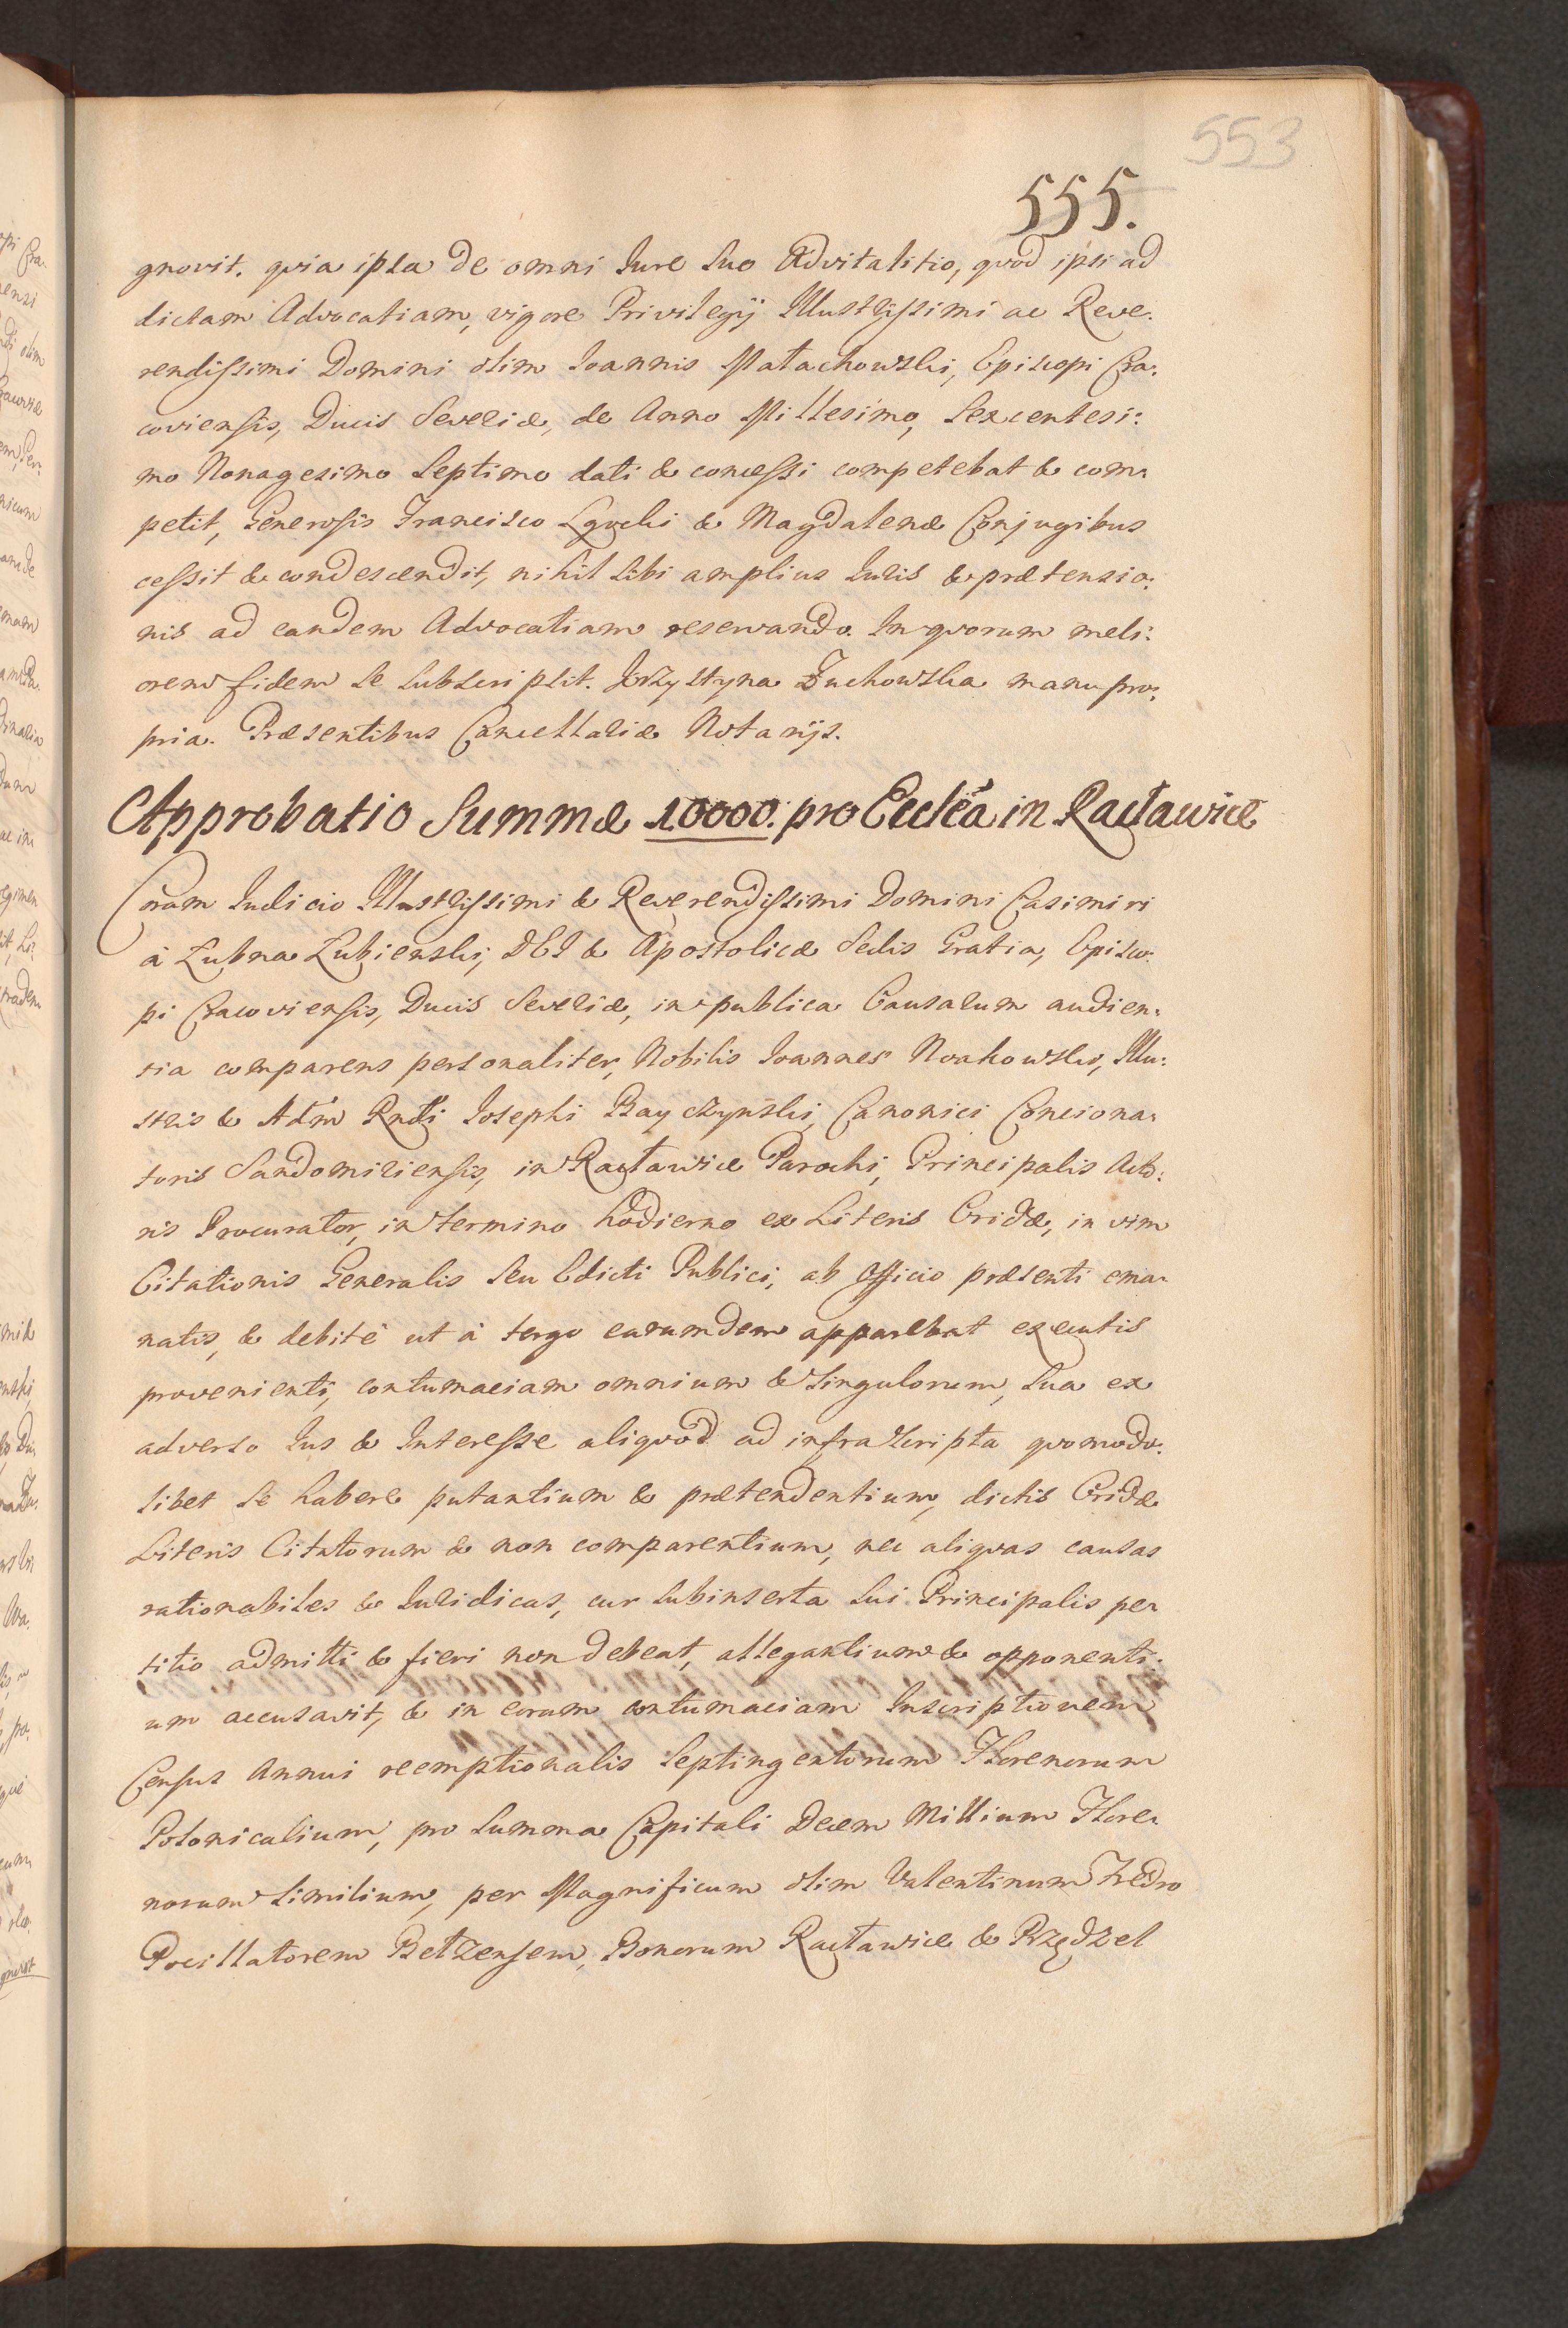 553
555.
gnovit. qvia ipsa de omni Jure suo Advitalitio, qvod ipsi ad
dictam Advocatiam, vigore Privilegij Illustrissimi ac Reve:
rendissimi Domini olim Joannis Małachowski, Episcopi Cra:
coviensis, Ducis Severiæ, de Anno Millesimo, Sexcentesi:
mo Nonagesimo Septimo dati & concessi competebat & com:
petit, Generosis Francisco & Magdalenæ Conjugibus
cessit & condescendit, nihil sibi amplius Juris & prætensio:
nis ad eandem Advocatiam reservando. In qvorum meli:
orem fidem se subscripsit. Krzystyna Żuchowska manu pro:
pria. Præsentibus Cancellariæ Notarijs.
Approbatio Summæ 10000. pro Ecclẽa in Racławice
Coram Judicio Illustrissimi & Reverendissimi Domini Casimiri
à Łubna Łubienski, DEI & Apostolicæ Sedis Gratia, Episco:
pi Cracoviensis, Ducis Severiæ, in publica Causarum audien:
tia comparens personaliter, Nobilis Joannes Noakowski, Illu:
stris & Adm̃ Rndi Josephi Bayczynski, Canonici Conciona:
toris Sandomiriensis, in Racławice Parochi, Principalis Acto:
ris Procurator, in termino hodierno ex Literis Cridæ, in vim
Citationis Generalis seu Edicti Publici, ab Officio præsenti ema:
natis, & debitè ut à tergo earumdem apparebat executis
provenienti, contumaciam omnium & singulorum, sua ex
adverso Jus & Interesse aliqvod ad infrascripta qvomodo:
libet se habere putantium & prætendentium, dictis Cridæ
Literis Citatorum & non comparentium, nec aliqvas causas
rationabiles & Juridicas, cur subinserta sui Principalis pe:
titio admitti & fieri non debeat, allegantium & opponenti:
um accusavit, & in eorum contumaciam Inscriptionem
Census Annui reemptionalis Septingentorum Florenorum
Polonicalium, pro Summa Capitali Decem Millium Flore:
norum similium, per Magnificum olim Valentinum Fredro
Pocillatorem Bełzensem, Bonorum Racławice & Przędzel